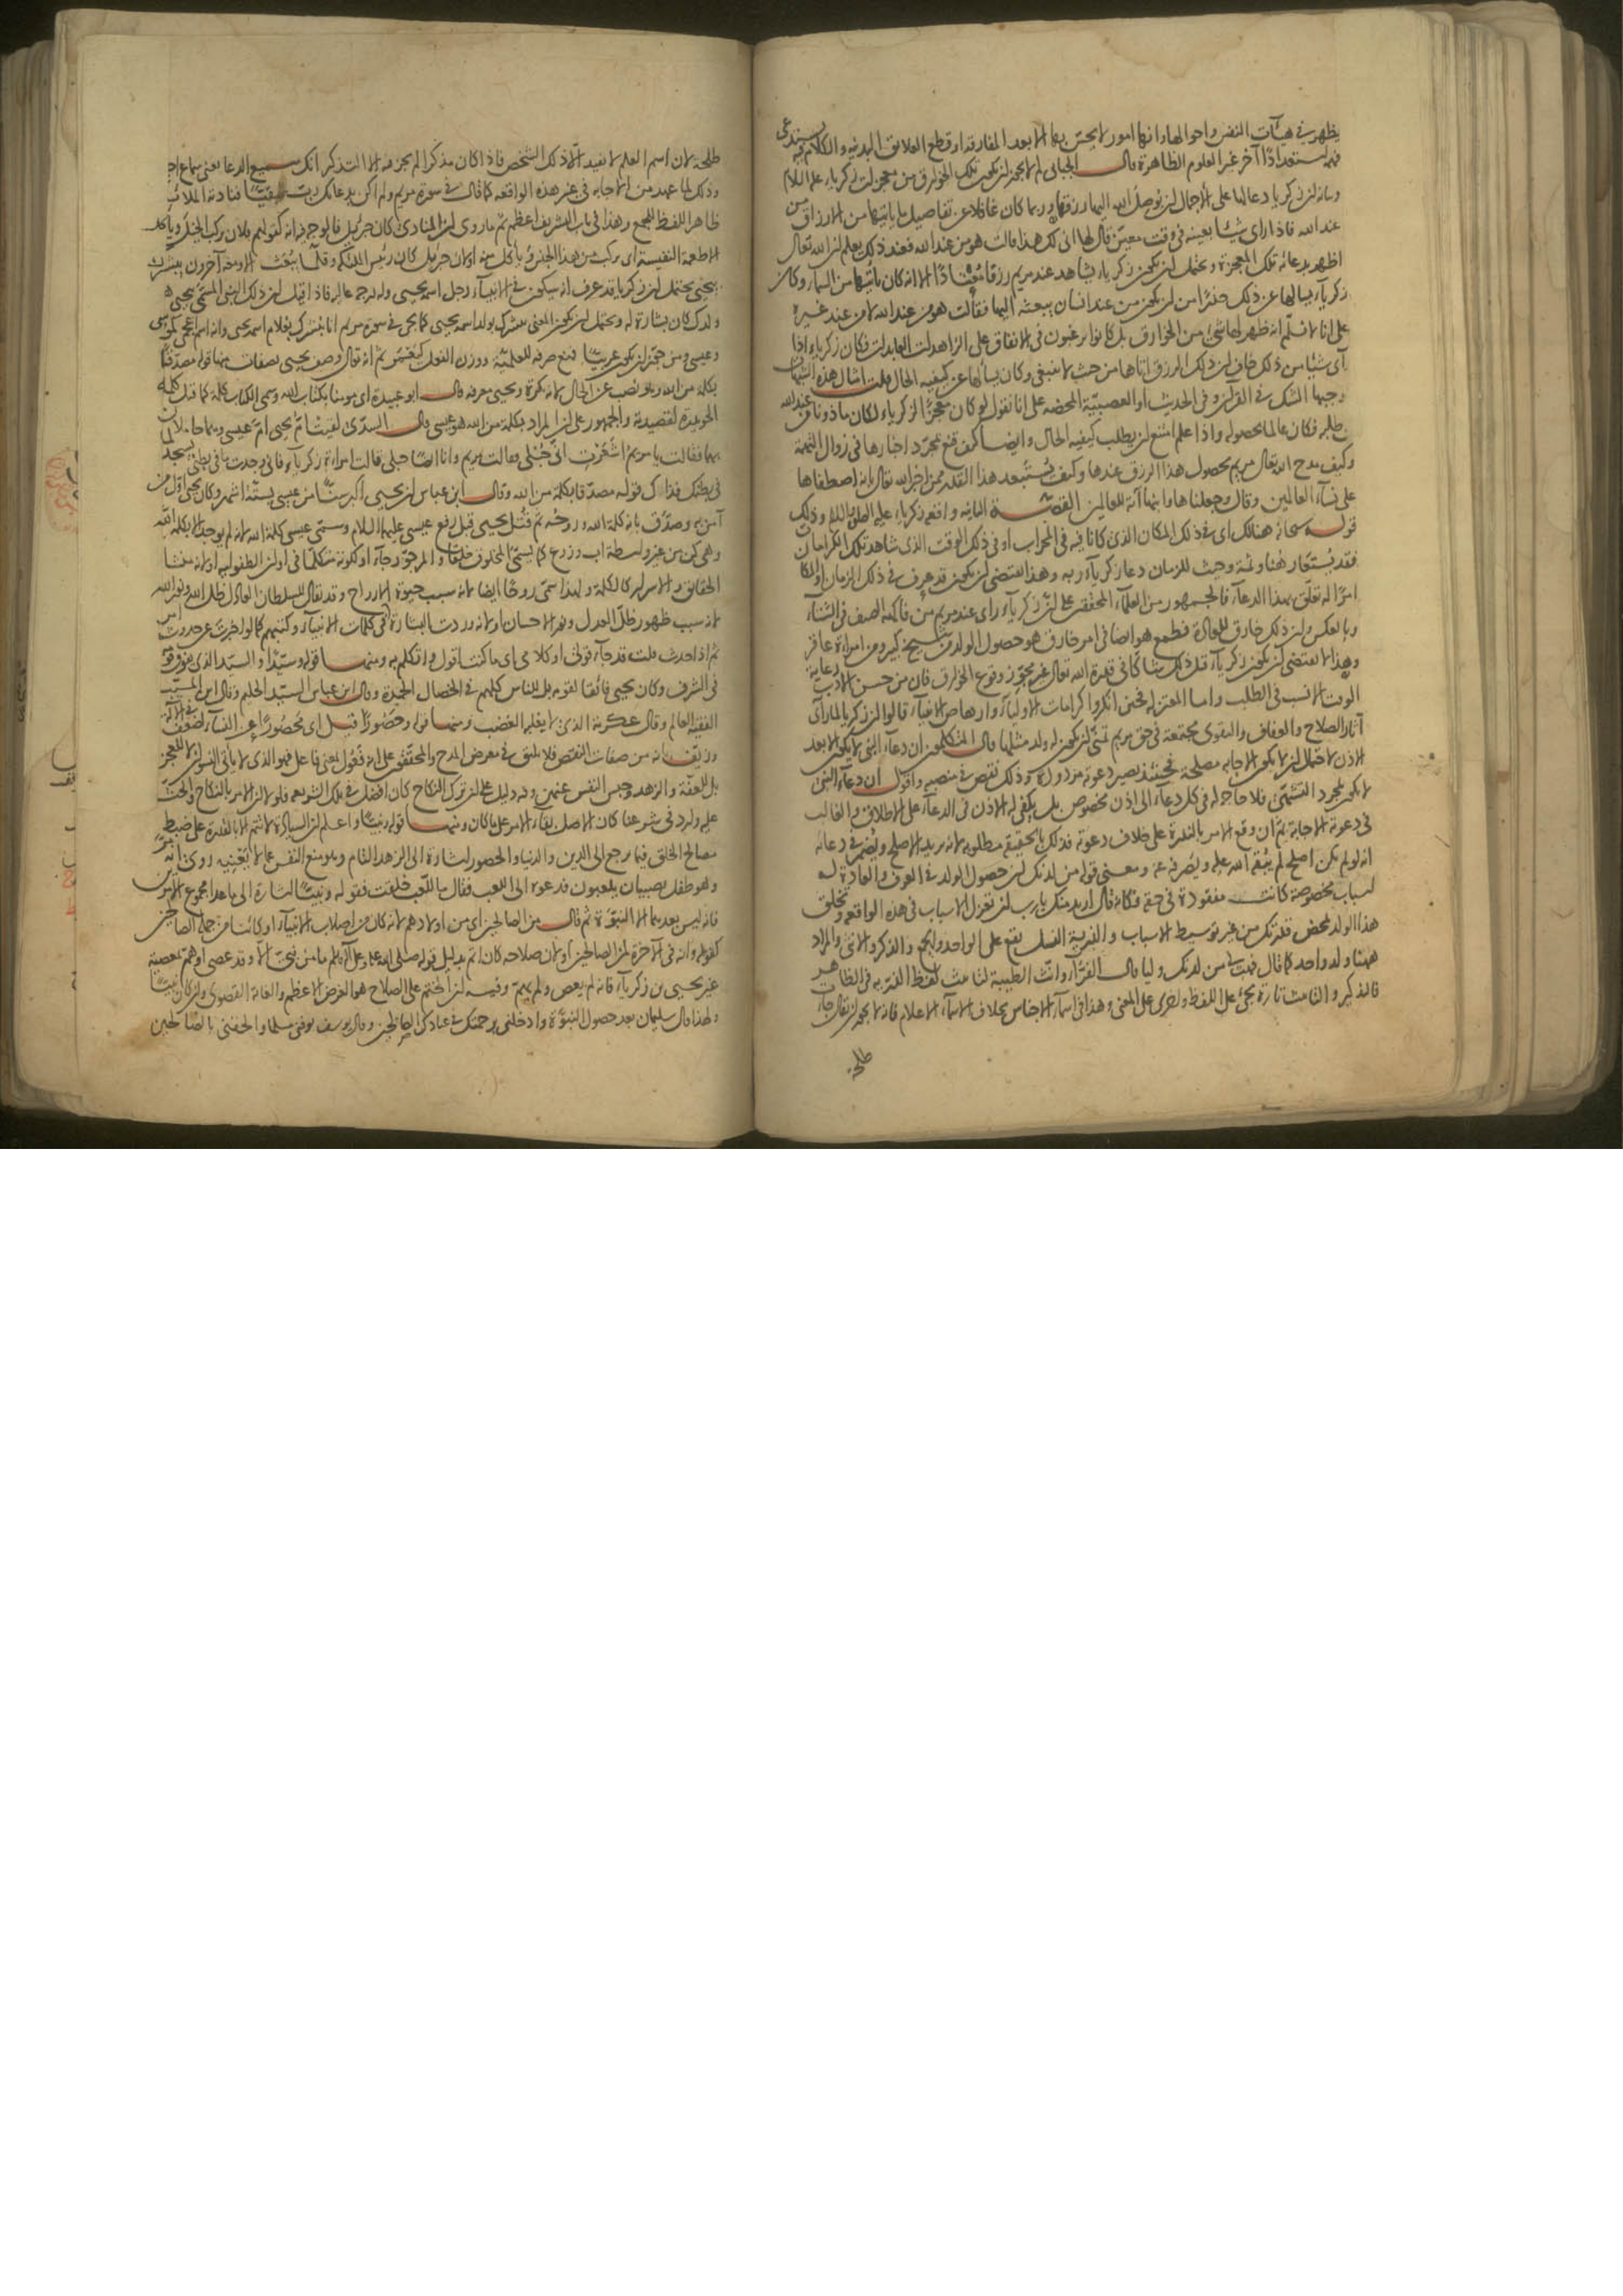 يظهر في هيآت النفس واحوالها وانها امور لا يحس بها الا بعد المفارقة او قطع العلايق البدنية والكلام فيه يستدعي
فهمه استعدادا آخر غير العلوم الظاهرة قال الجبائي لم لا يجوز ان يكون تلك الخوارق من معجزات زكرياء عليه السلام
وبيانه ان زكريا دعا لها على الاجمال ان يوصل الله اليها رزقها وربما كان غافلا عن تفاصيل ما ياتيها من الارزاق من
عند الله فاذا راى شيئا بعينه في وقت معين قال لها انى لك هذا قالت هو من عند الله فعند ذلك يعلم ان الله تعالى
اظهر بدعائه تلك المعجزة ويحتمل ان يكون زكرياء يشاهد عند مريم رزقا معتادا الا انه كان ياتيها من السماء وكان
زكرياء يسالها عن ذلك حذرا من ان يكون من عند انسان يبعثه اليها فقالت هو من عند الله لا من عند غيره
على انا لا نسلم انه ظهر لها شئ من الخوارق بل كانوا يرغبون في الانفاق على الزاهدات العابدات فكان زكرياء اذا
راى شيئا من ذلك خاف ان ذلك الرزق اتاها من حيث لا ينبغي وكان يسألها عن كيفية الحال قلت امثال هذه الشبهات
وجبها الشك في القرآن وفي الحديث او العصبية المحضة على انا نقول لو كان معجزا لزكرياء لكان ماذونا من عند الله
في طلبه فكان عالما بحصوله واذا علم امتنع ان يطلب كيفية الحال وايضا كيف قنع بمجرد اخبارها في زوال التهمة
وكيف مدح الله تعالى مريم بحصول هذا الرزق عندها وكيف يستبعد هذا القدر ممن اخبر الله تعالى بانه اصطفاها
على نساء العالمين وقال وجعلناها وابنها آية للعالمين القصة الثانية واقعة زكرياء عليه الصلوة والسلام وذلك
قوله سبحانه هنالك اى في ذلك المكان الذي كانا فيه في المحراب او في ذلك الوقت الذي شاهد تلك الكرامات
فقد يستعار هنا وثمة وحيث للزمان دعا زكرياء ربه وهذا يقتضي ان يكون قد عرف في ذلك الزمان او المكان
امرا له تعلق بهذا الدعاء فالجمهور من العلماء المحققين على ان زكرياء راى عند مريم من فاكهة الصيف في الشتاء
وبالعكس وان ذلك خارق للعادة فطمع هو ايضا في امر خارق هو حصول الولد من شيخ كبير ومن امراة عاقر
وهذا لا يقتضي ان يكون زكرياء قبل ذلك شاكا في قدرة الله تعالى غير مجوز وقوع الخوارق فان من حسن الادب رعاية
الوقت الانسب في الطلب واما المعتزلة فحين انكروا كرامات الاولياء وارهاص الانبياء قالوا ان زكريا لما راى
آثار الصلاح والعفاف والتقوى مجتمعة في حق مريم تمنى ان يكون له ولد مثلها قال المتكلمون ان دعاء النبي لا يكون الا بعد
الاذن لاحتمال ان لا يكون الاجابة مصلحة فحينئذ يصير دعوته مردودة وذلك نقص في منصبه واقول ان دعاء النبي
لا يكون لمجرد التشهي فلا حاجة له في كل دعاء الى اذن مخصوص بل يكفي له الاذن في الدعاء على الاطلاق والغالب
في دعوته الاجابة ثم ان وقع الامر بالندرة على خلاف دعوته فذلك بالحقيقة مطلوبه لانه يريد الاصلح ويضمر في دعائه
انه لو لم يكن اصلح لم يبعثه الله عليه ويصرفه عنه ومعنى قوله من لدنك ان حصول الولد في العرف والعادة له
اسباب مخصوصة كانت مفقودة في حقه وكانه قال اريد منك يا رب ان تعزل الاسباب في هذه الواقعة وتخلق
هذا الولد بمحض قدرتك من غير توسيط الاسباب والذرية النسل يقع على الواحد والجمع والذكر والانثى والمراد
ههنا ولد واحد كما قال فهب لي من لدنك وليا قال الفراء وانث الطيبة لتانيث لفظ الذرية في الظاهر
فالتذكير والتانيث تارة يجئ على اللفظ واخرى على المعنى وهذا في اسماء الاجناس بخلاف الاسماء الاعلام فانه لا يجوز ان يقال جاءت
طلحة
طلحة لان اسم العلم لا يفيد الا ذلك الشخص فاذا كان مذكرا لم يجز فيه الا التذكير انك سميع الدعا يعنى سماع اجابة
وذلك لما عهد من الاجابة في غير هذه الواقعة كما قال في سورة مريم ولم اكن بدعائك رب شقيا فنادته الملائكة
ظاهر اللفظ للجمع وهذا في باب التشريف اعظم ثم ما روى ان المنادى كان جبرئيل فالوجه فيه انه كقولهم فلان يركب الخيل وياكل
الاطعمة النفيسة اى يركب من هذا الجنس وياكل منه او لان جبرئيل كان رئيس الملائكة وقلما يبعث الا ومعه آخرون يبشرك
بيحيى يحتمل ان زكريا قد عرف انه سيكون في الانبياء رجل اسمه يحيى وله درجة عالية فاذا قيل له ان ذلك النبي المسمى بيحيى هو
ولدك كان بشارة له ويحتمل ان يكون المعنى يبشرك بولد اسمه يحيى كما يجئ في سورة مريم انا نبشرك بغلام اسمه يحيى وانه اسم اعجمي كموسى
وعيسى ومن جوز ان يكون عربيا فمنع صرفه للعلمية ووزن الفعل كيعمر ثم انه تعالى وصف يحيى بصفات منها قوله مصدقا
بكلمة من الله وهو نصب على الحال لانه نكرة ويحيى معرفة قال ابو عبيدة اى مومنا بكتاب الله وسمى الكتاب كلمة كما قيل كلمة
الحويدرة لقصيدته والجمهور على ان المراد بكلمة من الله هو عيسى قال السدى لقيت ام يحيى ام عيسى وهما حاملان
بهما فقالت يا مريم اشعرت انى حبلى فقالت مريم وانا ايضا حبلى قالت امراة زكرياء فاني وجدت ما في بطني يسجد لما
في بطنك فذلك قوله مصدقا بكلمة من الله وقال ابن عباس ان يحيى اكبر سنا من عيسى بستة اشهر وكان يحيى اول من
آمن به وصدق بانه كلمة الله وروحه ثم قتل يحيى قبل رفع عيسى عليهما السلام وسمى عيسى كلمة الله لانه لم يوجد الا بكلمة الله
وهي كن من غير واسطة اب وزرع كما يسمى المخلوق خلقا والمرجو رجاء او لكونه متكلما في اوان الطفولية او لانه منشا
الحقائق والاسرار كالكلمة ولهذا سمى روحا ايضا لانه سبب حيوة الارواح وقد يقال للسلطان العادل ظل الله ونور الله
لانه سبب ظهور ظل العدل ونور الاحسان او لانه وردت البشارة به في كلمات الانبياء وكتبهم كما لو اخبرت عن حدوث امر
ثم اذا حدث قلت قد جاء قولى او كلامي اى ما كنت اقول واتكلم به ومنها قوله وسيدا والسيد الذي يفوق قومه
في الشرف وكان يحيى فائقا لقومه بل للناس كلهم في الخصال الحميدة وقال ابن عباس السيد الحليم وقال ابن المسيب
الفقيه العالم وقال عكرمة الذي لا يغلبه الغضب ومنها قوله وحصورا قيل اى محصورا عن النساء لضعف في الآلة
وزيف بانه من صفات النقص فلا يليق في معرض المدح والمحققون على انه فعول بمعنى فاعل فهو الذي لا ياتي النسوان لا للعجز
بل للعفة والزهد وحبس النفس عنهن وفيه دليل على ان ترك النكاح كان افضل في تلك الشريعة فلولا ان الامر بالنكاح والحث
عليه وارد في شرعنا كان الاصل بقاء الامر على ما كان ومنها قوله ونبيا واعلم ان السيادة لا تتم الا بالقدرة على ضبط
مصالح الخلق فيما يرجع الى الدين والدنيا والحصور اشارة الى الزهد التام وهو منع النفس عما لا يعنيه روى انه مر
وهو طفل بصبيان يلعبون فدعوه الى اللعب فقال ما للعب خلقت فقوله ونبيا اشارة الى ما عدا مجموع الامرين
فانه ليس بعدهما الا النبوة ثم قال من الصالحين اى من اولادهم لانه كان من اصلاب الانبياء او كائنا من جملة الصالحين
كقوله وانه في الآخرة لمن الصالحين او لان صلاحه كان اتم بدليل قوله صلى الله عليه وعلى آله وسلم ما من نبى الا وقد عصى او هم بمعصية
غير يحيى بن زكرياء فانه لم يعص ولم يهم وفيه ان الختم على الصلاح هو الغرض الاعظم والغاية القصوى وان كان نبيا
ولهذا قال سليمان بعد حصول النبوة وادخلني برحمتك في عبادك الصالحين وقال يوسف توفني مسلما والحقني بالصالحين